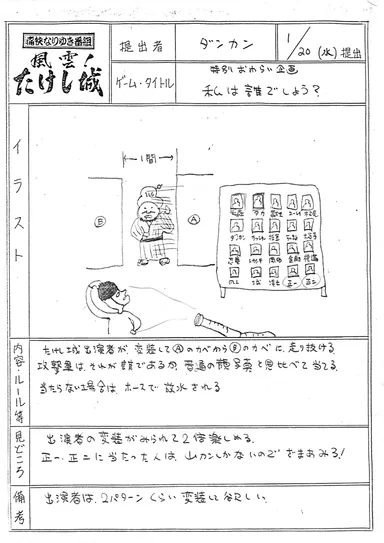 痛快なりゆき番組
風雲!
たけし城
提出者
ダンカン
1/20(水)提出
ゲーム・タイトル
特別おわらい企画
私は誰でしょう?
イラスト
1間
B
A
タカ
ダンカン
正一
正二
内容・ルール等
たけし城出演者が、変装してAのかべからBのかべに走り抜ける
攻撃軍は、それが誰であるか、普通の顔写真と見比べて当てる。
当たらない場合は、ホースで放水される
見どころ
出演者の変装がみられて2倍楽しめる。
正一、正二に当たった人は、山カンしかないのでざまあみろ!
備考
出演者は、2パターンくらい変装して欲しい。